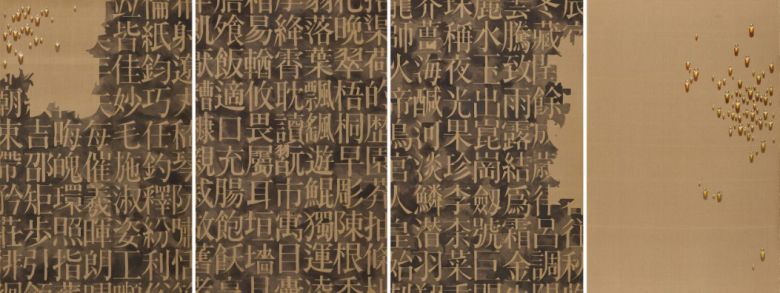 辰往秋
冬藏餘成歲呂調
雲騰致雨露結爲霜金
麗水玉出崑崗劍號巨
珠稱夜光果珍李柰菜
芥薑海鹹河淡鱗潛羽
師火帝鳥官人皇始
渠荷的歷園抽條
杷晚翠梧桐早彫陳根
翳落葉飄颻遊鵾獨運凌
摩絳霄耽讀翫市寓目囊
易輶攸畏屬耳垣牆
膳飡飯適口充腸飽飫
飢厭糟糠親戚故舊
射遼丸阮嘯恬
倫紙鈞巧任釣釋紛利俗
皆佳妙毛施淑姿工
每催羲暉朗
晦魄環照指
吉邵矩步引領
廟束帶矜莊徘